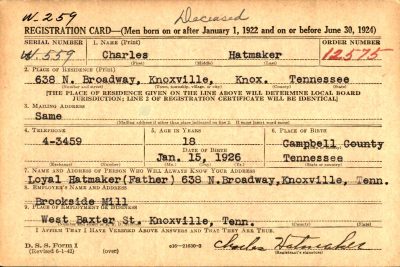 W. 259
Deceased
REGISTRATION CARD—(Men born on or after January 1, 1922 and on or before June 30, 1924)
SERIAL NUMBER 1. NAME (Print) ORDER NUMBER
W. 559 Charles Hatmaker 12575
(First) (Middle) (Last)
2. PLACE OF RESIDENCE (Print)
638 N. Broadway, Knoxville, Knox. Tennessee
(Number and street) (Town, township, village, or city) (County) (State)
[THE PLACE OF RESIDENCE GIVEN ON THE LINE ABOVE WILL DETERMINE LOCAL BOARD
JURISDICTION; LINE 2 OF REGISTRATION CERTIFICATE WILL BE IDENTICAL]
3. MAILING ADDRESS
Same
[Mailing address if other than place indicated on line 2. If same insert word same]
4. TELEPHONE 5. AGE IN YEARS 6. PLACE OF BIRTH
4-3459 18 Campbell County
DATE OF BIRTH
Jan. 15, 1926 Tennessee
7. NAME AND ADDRESS OF PERSON WHO WILL ALWAYS KNOW YOUR ADDRESS
Loyal Hatmaker(Father) 638 N.Broadway,Knoxville, Tenn.
8. EMPLOYER'S NAME AND ADDRESS
Brookside Mill
9. PLACE OF EMPLOYMENT OR BUSINESS
West Baxter St. Knoxville, Tenn.
I AFFIRM THAT I HAVE VERIFIED ABOVE ANSWERS AND THAT THEY ARE TRUE.
D. S. S. Form 1
(Revised 6-1-42) (over) Charles Hatmaker